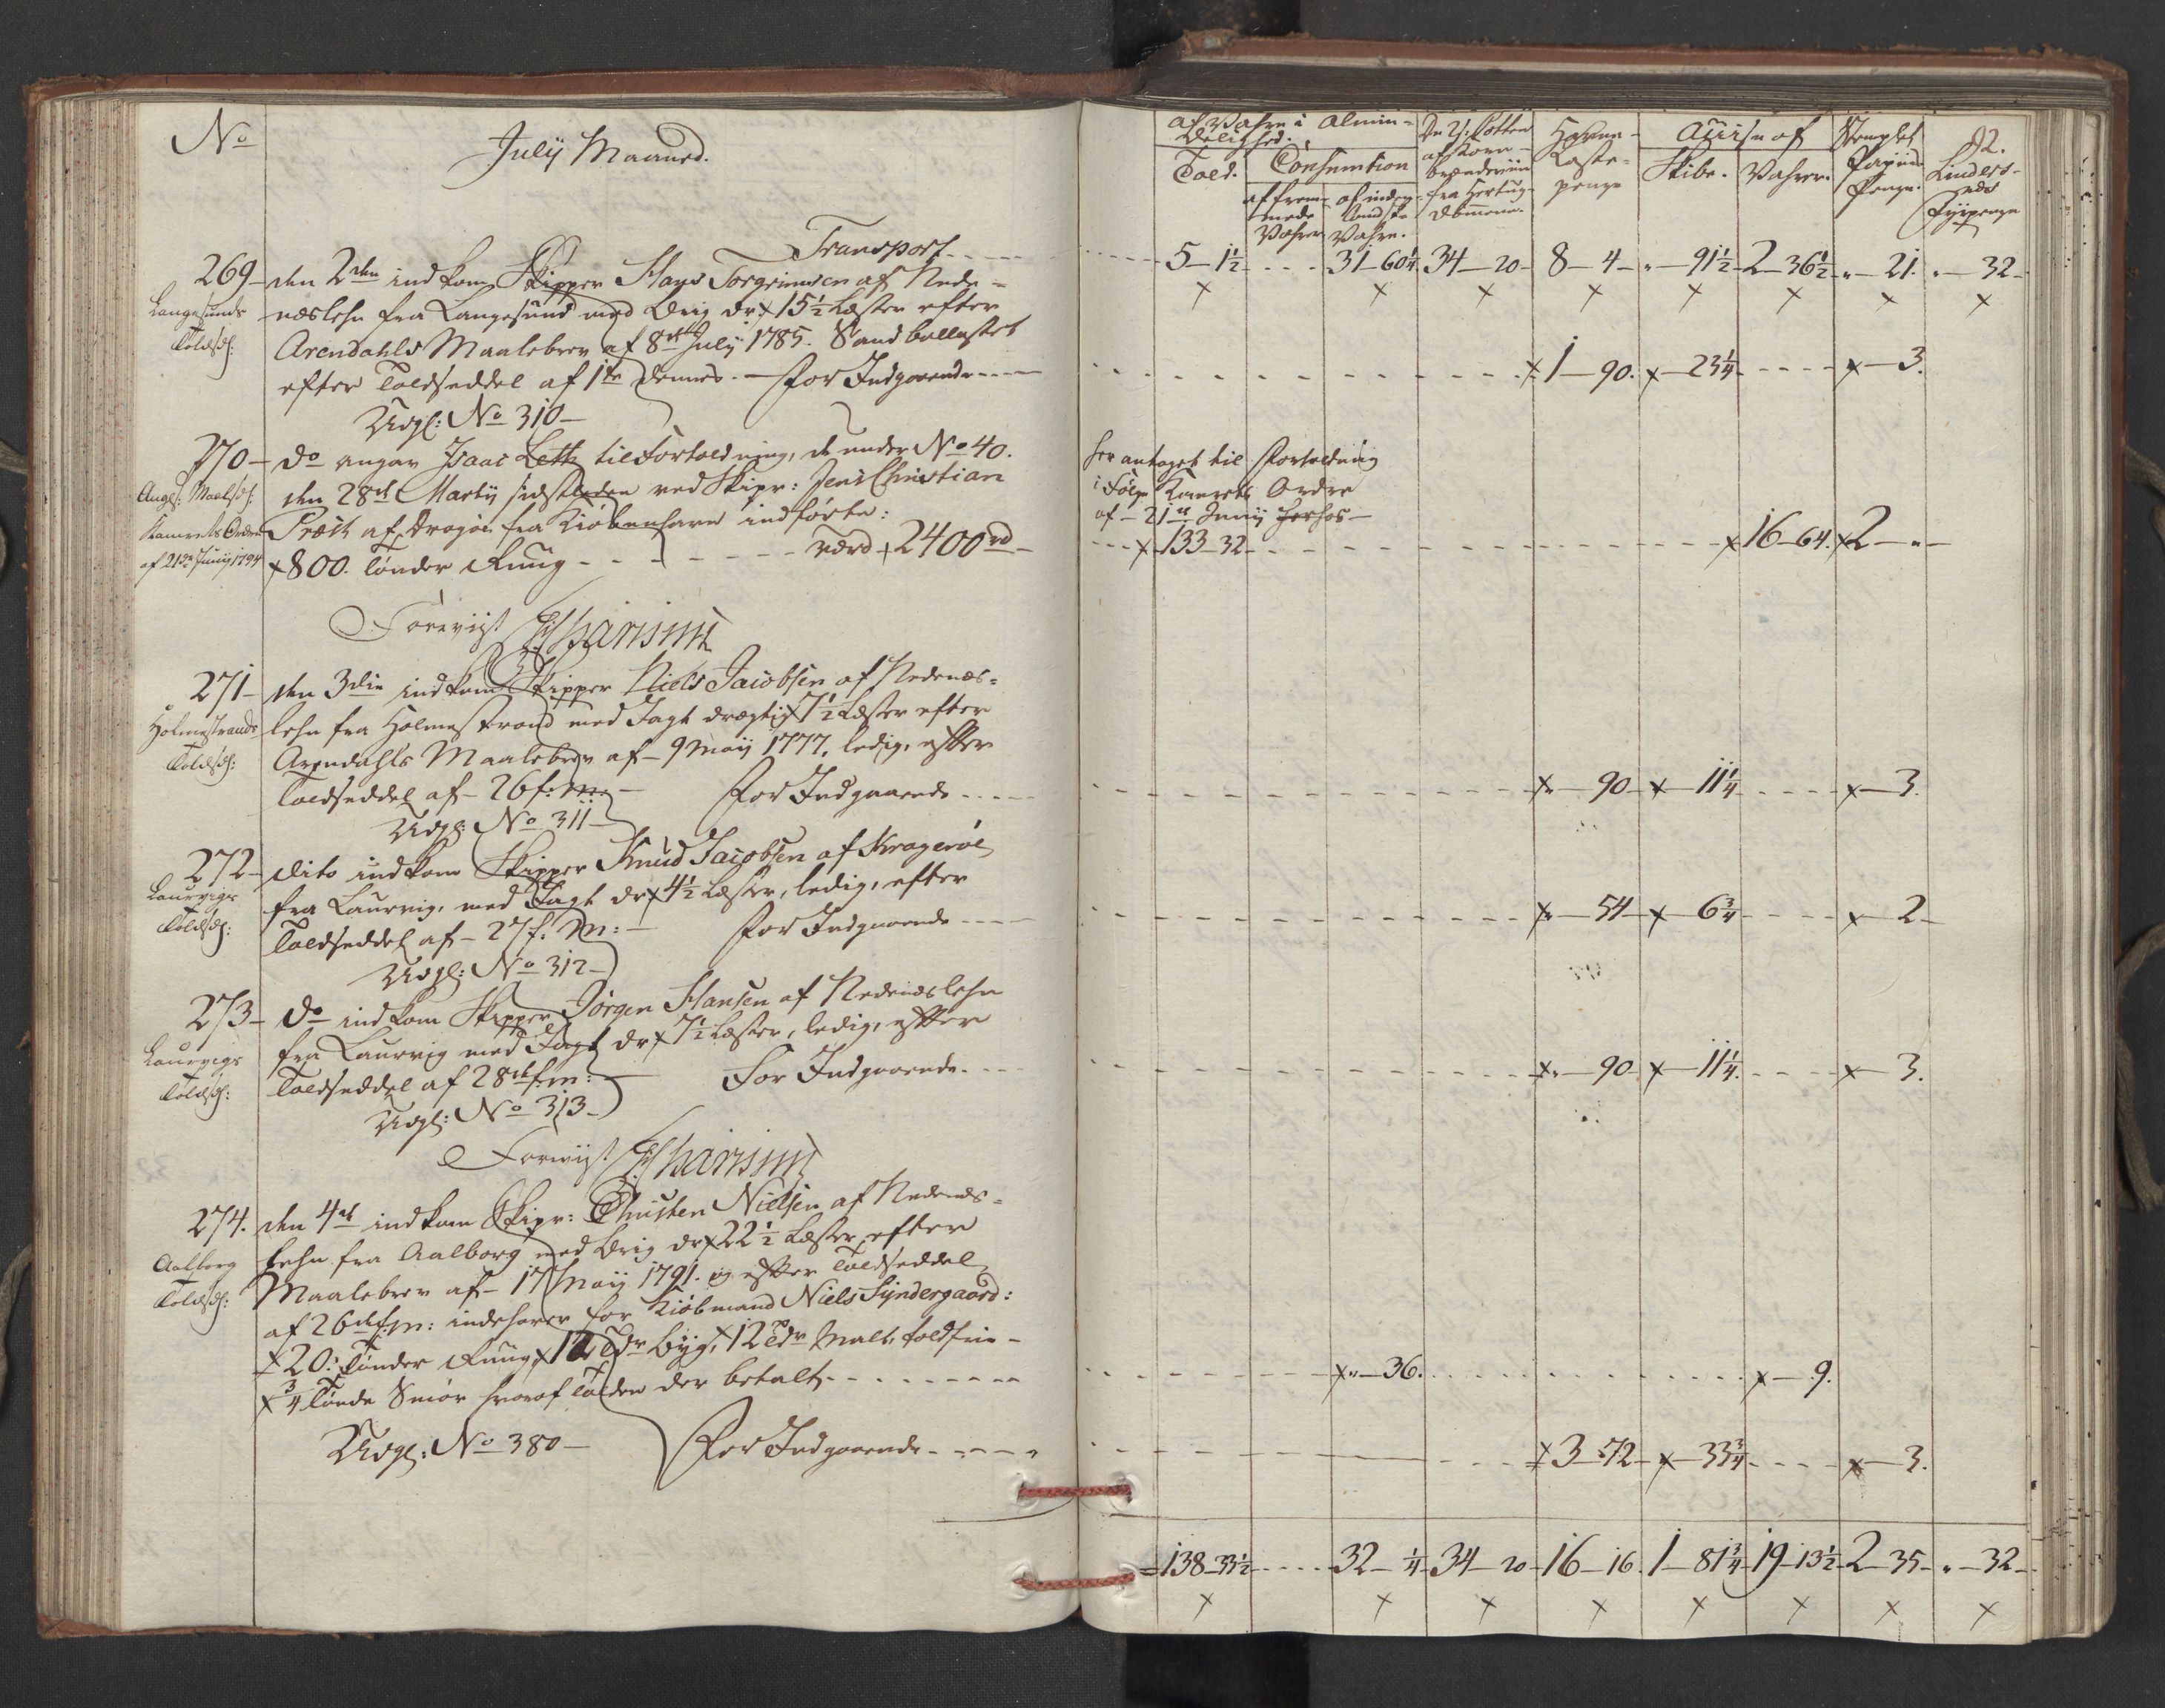 No
July Maaned.
Transport
269 den 2den indkom Skipper Hans Torgrimsen af Nede-
Langesunds næslehn fra Langesund med Brig dr: 15½ Læster efter
Toldsedl: Arendahls Maalebrev af 8de July 1785. Sandballastet
efter Toldseddel af 1te dennes. For Indgaaende
Udgl: No 310
270 do angav Isaac Leth til Fortoldning, de under No 40.
den 28de Martij sidstleden ved Skipr: Jens Christian
Kamrets Ordre af Dragøe fra Kiøbenhavn indførte:
af 21de Junij 1794 800. Tønder Ruug værd 2400 rd
Foreviist
271 den 3die indkom Skipper Niels Jacobsen af Nedenæs-
Holmestrands lehn fra Holmestrand med Jagt drægtig 7½ Læster efter
Toldsedl: Arendahls Maalebrev af 9 Maij 1777, ledig, efter
Toldseddel af 26 f: m: For Indgaaende
Udgl: No 311
272 dito indkom Skipper Knud Jacobsen af Kragerøe
Laurvigs fra Laurvig, med Jagt dr 4½ Læster, ledig, efter
Toldsedl: Toldseddel af 27 f: M: For Indgaaende
Udgl: No 312
273 do indkom Skipper Jørgen Hansen af Nedenæslehn
Laurvigs fra Laurvig med Jagt dr 7½ Læster, ledig, efter
Toldsedl: Toldseddel af 28de f: m: For Indgaaende
Udgl: No 313
Foreviist
274. den 4de indkom Skipr: Christen Nielsen af Nedenæs-
Aalborg lehn fra Aalborg med Brig dr 22½ Læster, efter
Toldsedl: Maalebrev af 17 Maij 1791. og efter Toldseddel
af 26de f: m: indehaver for Kiøbmand Niels Syndergaard:
20. Tønder Ruug, Tdr Byg, 12 Tdr Malt, toldfrie
¾ Tønde Smør hvoraf Tolden der betalt
Udgl: No 380 For Indgaaende
92.
af Vahre i Almin-
delighed.
Told. Consumtion
af frem-
mede
Vahrer
af indenlandske
Vahre.
af Korn-
brændeviin
fra Hertug-
dømmene.
Havne-
Læste-
penge
Accise af
Skibe. Vahrer.
Stemplet
Papiirs
Penge.
Linders-
næs
Fyrpenge
5 1½ 31 60¼ 34 20 8 4 " 91½ 2 36½ " 21. " 32
1 90. 23¼ 3.
her antaget til Fortoldning
i Følge Kamrets Ordre
af 21de Junij
133 32 16 64. 2 "
90 11¼ 3.
54 6¾ 2
90 11¼ 3.
" 36. 9.
3 72 33¾ 3.
138 33½ 32 ¼ 34 20 16 16 1 81¾ 19 13½ 2 35 " 32